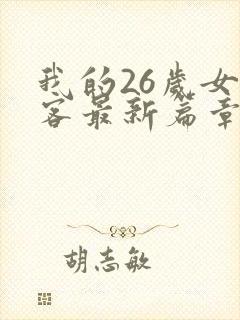 我的26歲女
客最新篇章
胡志敏